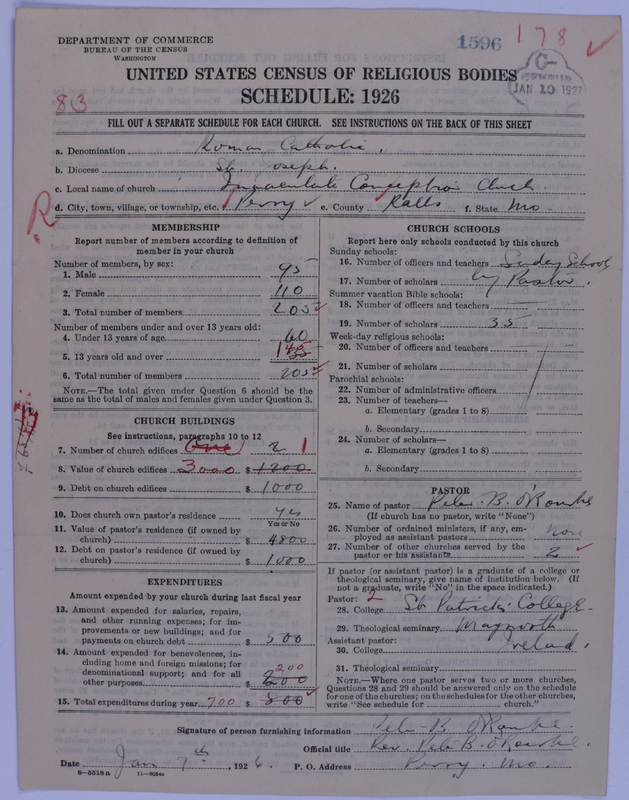 DEPARTMENT OF COMMERCE
BUREAU OF THE CENSUS
WASHINGTON
1596
178 ✓
C
CENSUS
JAN 10 1927
UNITED STATES CENSUS OF RELIGIOUS BODIES
SCHEDULE: 1926
83
FILL OUT A SEPARATE SCHEDULE FOR EACH CHURCH. SEE INSTRUCTIONS ON THE BACK OF THIS SHEET
a. Denomination Roman Catholic,
b. Diocese St. Joseph.
c. Local name of church Immaculate Conception Church.
R
d. City, town, village, or township, etc. Perry ✓ e. County Ralls f. State Mo
MEMBERSHIP
Report number of members according to definition of
member in your church
Number of members, by sex:
1. Male 95
2. Female 110
3. Total number of members 205 ✓
Number of members under and over 13 years old:
4. Under 13 years of age 60
5. 13 years old and over 145
6. Total number of members 205 ✓
NOTE.—The total given under Question 6 should be the
same as the total of males and females given under Question 3.
CHURCH BUILDINGS
See instructions, paragraphs 10 to 12
7. Number of church edifices One 2 1
8. Value of church edifices 3000 $ 1200
9. Debt on church edifices $ 1000
10. Does church own pastor's residence yes
Yes or No
11. Value of pastor's residence (if owned by
church) $ 4800
12. Debt on pastor's residence (if owned by
church) $ 1500
EXPENDITURES
Amount expended by your church during last fiscal year
13. Amount expended for salaries, repairs,
and other running expenses; for im-
provements or new buildings; and for
payments on church debt $ 500
14. Amount expended for benevolences, in-
cluding home and foreign missions; for
denominational support; and for all
other purposes $ 200
15. Total expenditures during year 700 $ 800 ✓
CHURCH SCHOOLS
Report here only schools conducted by this church
Sunday schools:
16. Number of officers and teachers Sunday School
17. Number of scholars by Pastor.
Summer vacation Bible schools:
18. Number of officers and teachers
19. Number of scholars 35
Week-day religious schools:
20. Number of officers and teachers
21. Number of scholars
Parochial schools:
22. Number of administrative officers
23. Number of teachers—
a. Elementary (grades 1 to 8)
b. Secondary
24. Number of scholars—
a. Elementary (grades 1 to 8)
b. Secondary
PASTOR
25. Name of pastor Peter B. O'Rourke
(If church has no pastor, write "None")
26. Number of ordained ministers, if any, em-
ployed as assistant pastors None
27. Number of other churches served by the
pastor or his assistants 2 ✓
If pastor (or assistant pastor) is a graduate of a college or
theological seminary, give name of institution below. (If
not a graduate, write "No" in the space indicated.)
Pastor: 2
28. College St Patricks College
29. Theological seminary Maynooth
Assistant pastor:
30. College Ireland,
31. Theological seminary
NOTE.—Where one pastor serves two or more churches,
Questions 28 and 29 should be answered only on the schedule
for one of the churches; on the schedules for the other churches,
write "See schedule for church."
Signature of person furnishing information Peter B O'Rourke.
Official title Rev. Peter B. O'Rourke.
Date Jan 7th, 1926. P. O. Address Perry. Mo.
8—5518a 11—9054a